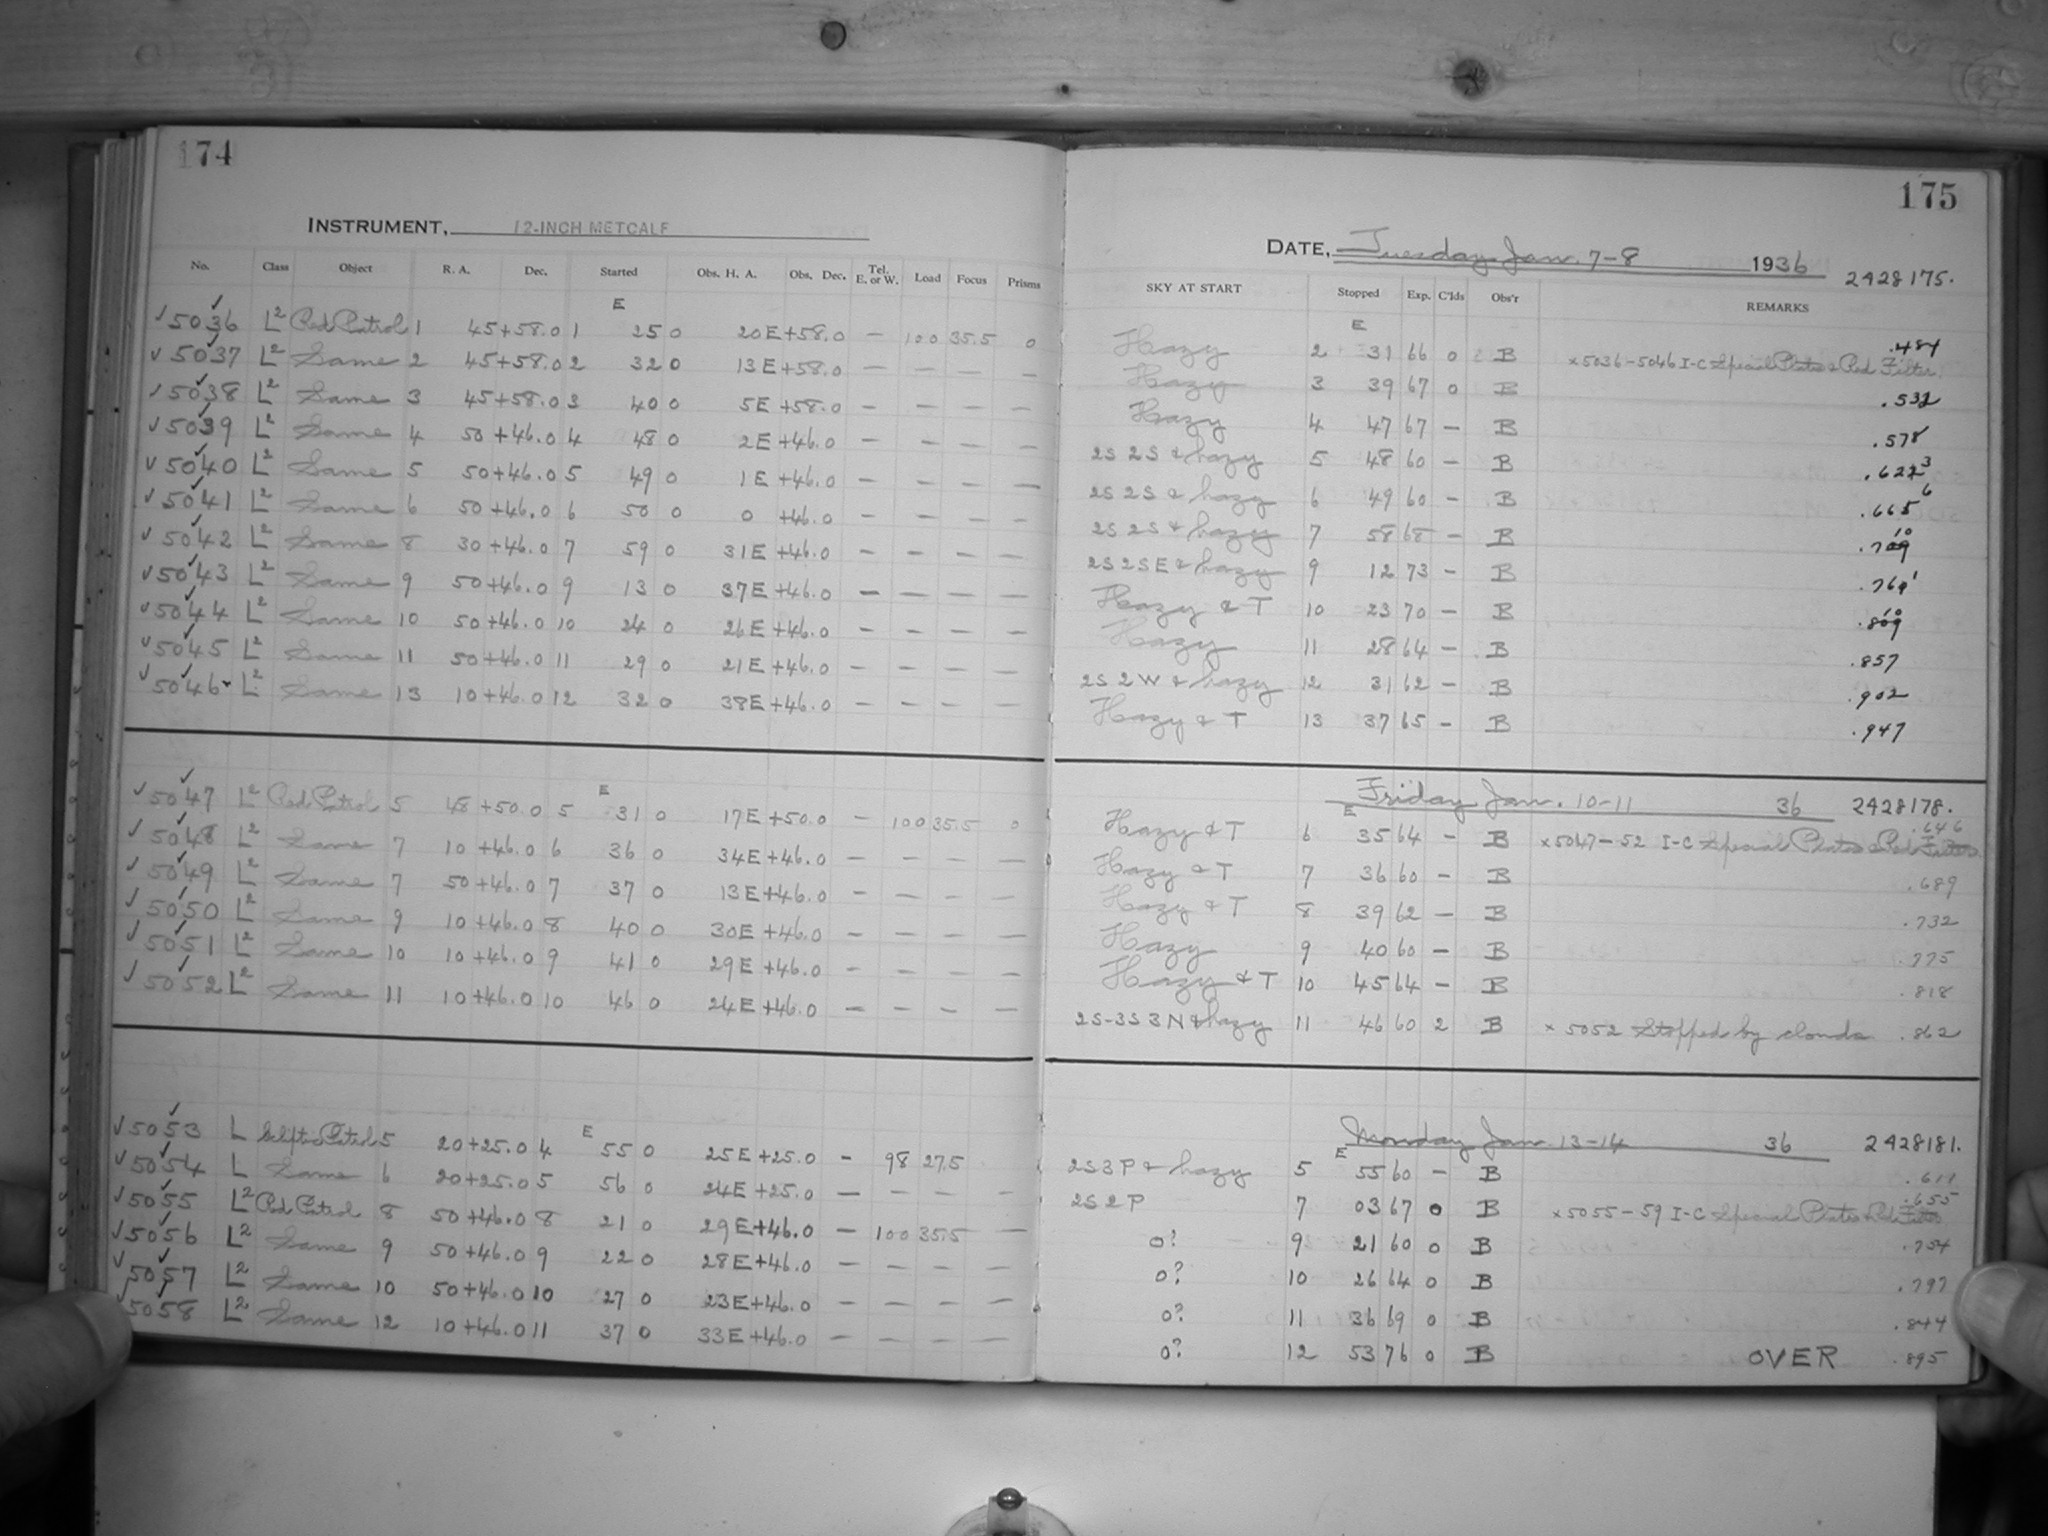 174
INSTRUMENT, 12-INCH METCALF
No. Class Object R. A. Dec. Started Obs. H. A. Obs. Dec. Tel. E. or W. Load Focus Prisms
E
5036 L2 Red Patrol 1 45 +58.0 1 25 0 20E +58.0 — 100 35.5 0
5037 L2 Same 2 45 +58.0 2 32 0 13E +58.0 — — — —
5038 L2 Same 3 45 +58.0 3 40 0 5E +58.0 — — — —
5039 L2 Same 4 50 +46.0 4 48 0 2E +46.0 — — — —
5040 L2 Same 5 50 +46.0 5 49 0 1E +46.0 — — — —
5041 L2 Same 6 50 +46.0 6 50 0 0 +46.0 — — — —
5042 L2 Same 8 30 +46.0 7 59 0 31E +46.0 — — — —
5043 L2 Same 9 50 +46.0 9 13 0 37E +46.0 — — — —
5044 L2 Same 10 50 +46.0 10 24 0 26E +46.0 — — — —
5045 L2 Same 11 50 +46.0 11 29 0 21E +46.0 — — — —
5046 L2 Same 13 10 +46.0 12 32 0 38E +46.0 — — — —
E
5047 L2 Red Patrol 5 48 +50.0 5 31 0 17E +50.0 — 100 35.5 0
5048 L2 Same 7 10 +46.0 6 36 0 34E +46.0 — — — —
5049 L2 Same 7 50 +46.0 7 37 0 13E +46.0 — — — —
5050 L2 Same 9 10 +46.0 8 40 0 30E +46.0 — — — —
5051 L2 Same 10 10 +46.0 9 41 0 29E +46.0 — — — —
5052 L2 Same 11 10 +46.0 10 46 0 24E +46.0 — — — —
E
5053 L Eclptic Patrol 5 20 +25.0 4 55 0 25E +25.0 — 98 27.5
5054 L Same 6 20 +25.0 5 56 0 24E +25.0 — — — —
5055 L2 Red Patrol 8 50 +46.0 8 21 0 29E +46.0 — 100 35.5 —
5056 L2 Same 9 50 +46.0 9 22 0 28E +46.0 — — — —
5057 L2 Same 10 50 +46.0 10 27 0 23E +46.0 — — — —
5058 L2 Same 12 10 +46.0 11 37 0 33E +46.0 — — — —
175
DATE, Tuesday Jan. 7-8 1936 2428175.
SKY AT START Stopped Exp. C'lds Obs'r REMARKS
E
Hazy 2 31 66 0 B x5036-5046 I-C Special Plates & Red Filter. .484
Hazy 3 39 67 0 B .532
Hazy 4 47 67 — B .578
2S 2S & hazy 5 48 60 — B
2S 2S & hazy 6 49 60 — B
2S 2S & hazy 7 58 68 — B
2S 2S E & hazy 9 12 73 — B
Hazy & T 10 23 70 — B
Hazy 11 28 64 — B .857
2S 2W & hazy 12 31 62 — B .902
Hazy & T 13 37 65 — B .947
Friday Jan. 10-11 36 2428178.
E
Hazy & T 6 35 64 — B x5047-52 I-C Special Plates & Red Filter. .646
Hazy & T 7 36 60 — B .689
Hazy & T 8 39 62 — B .732
Hazy 9 40 60 — B .775
Hazy & T 10 45 64 — B .818
2S-3S 3N & hazy 11 46 60 2 B x 5052 Stopped by clouds .862
Monday Jan. 13-14 36 2428181.
E
2S 3P & hazy 5 55 60 — B .611
2S 2P 7 03 67 0 B x5055-59 I-C Special Plates & Red Filter .655
0? 9 21 60 0 B .754
0? 10 26 64 0 B .797
0? 11 36 69 0 B .844
0? 12 53 76 0 B OVER .895